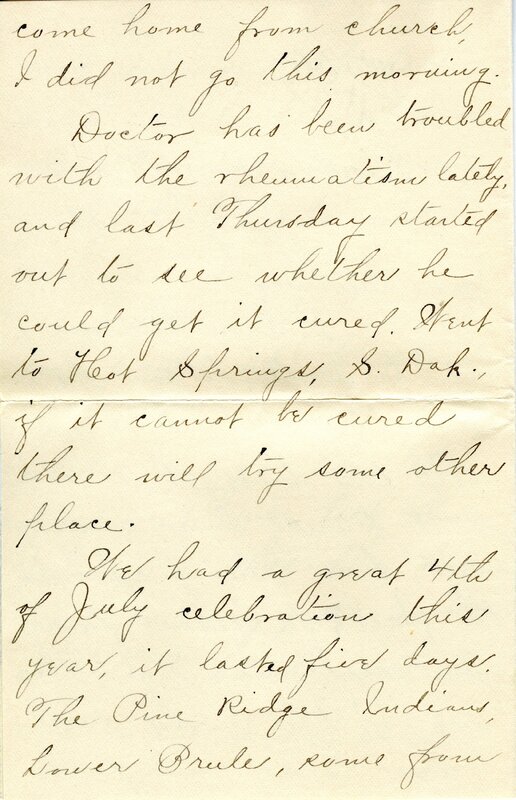 come home from church,
I did not go this morning.
Doctor has been troubled
with the rheumatism lately,
and last Thursday started
out to see whether he
could get it cured. Went
to Hot Springs, S. Dak.,
if it cannot be cured
there will try some other
place.
We had a great 4th
of July celebration this
year, it lasted five days.
The Pine Ridge Indians,
Lower Brule, some from